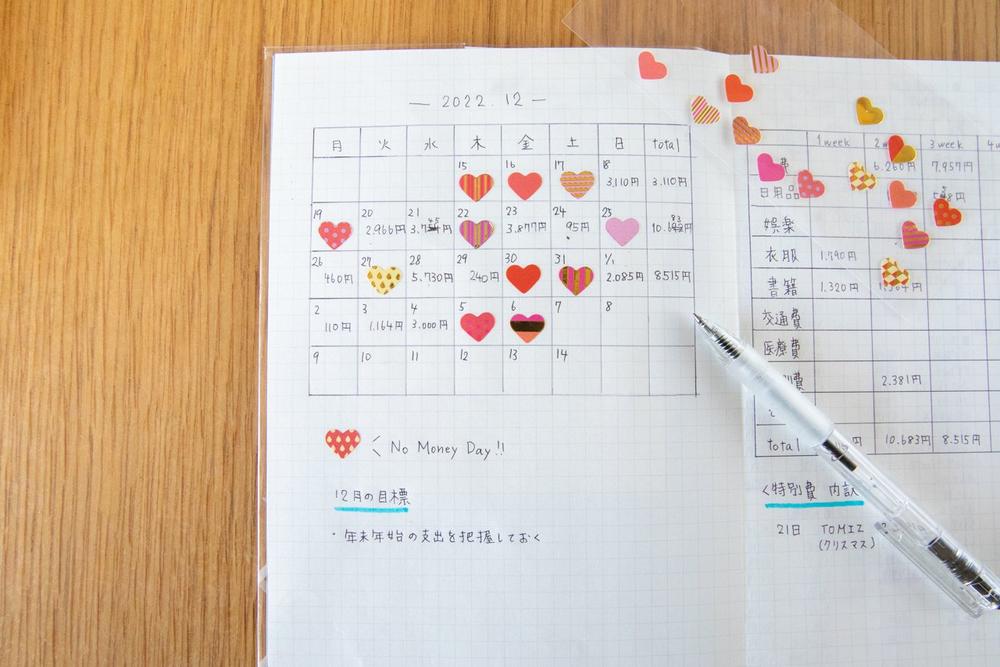 — 2022.12 —
月 火 水 木 金 土 日 total
15 16 17 18
3,110円 3,110円
19 20 21 22 23 24 25
2,966円 3,877円 95円
26 27 28 29 30 31 1/1
460円 5,730円 240円 2,085円 8515円
2 3 4 5 6 7 8
110円 1,164円 3,000円
9 10 11 12 13 14
No Money Day!!
12月の目標
・年末年始の支出を把握しておく
1week 3week
費 6.260円 7.957円
日用品
娯楽
衣服 1.790円
書籍 1.320円
交通費
医療費
2.381円
total 円 10.683円 8.515円
<特別費 内訳
21日 TOMIZ
(クリスマス)